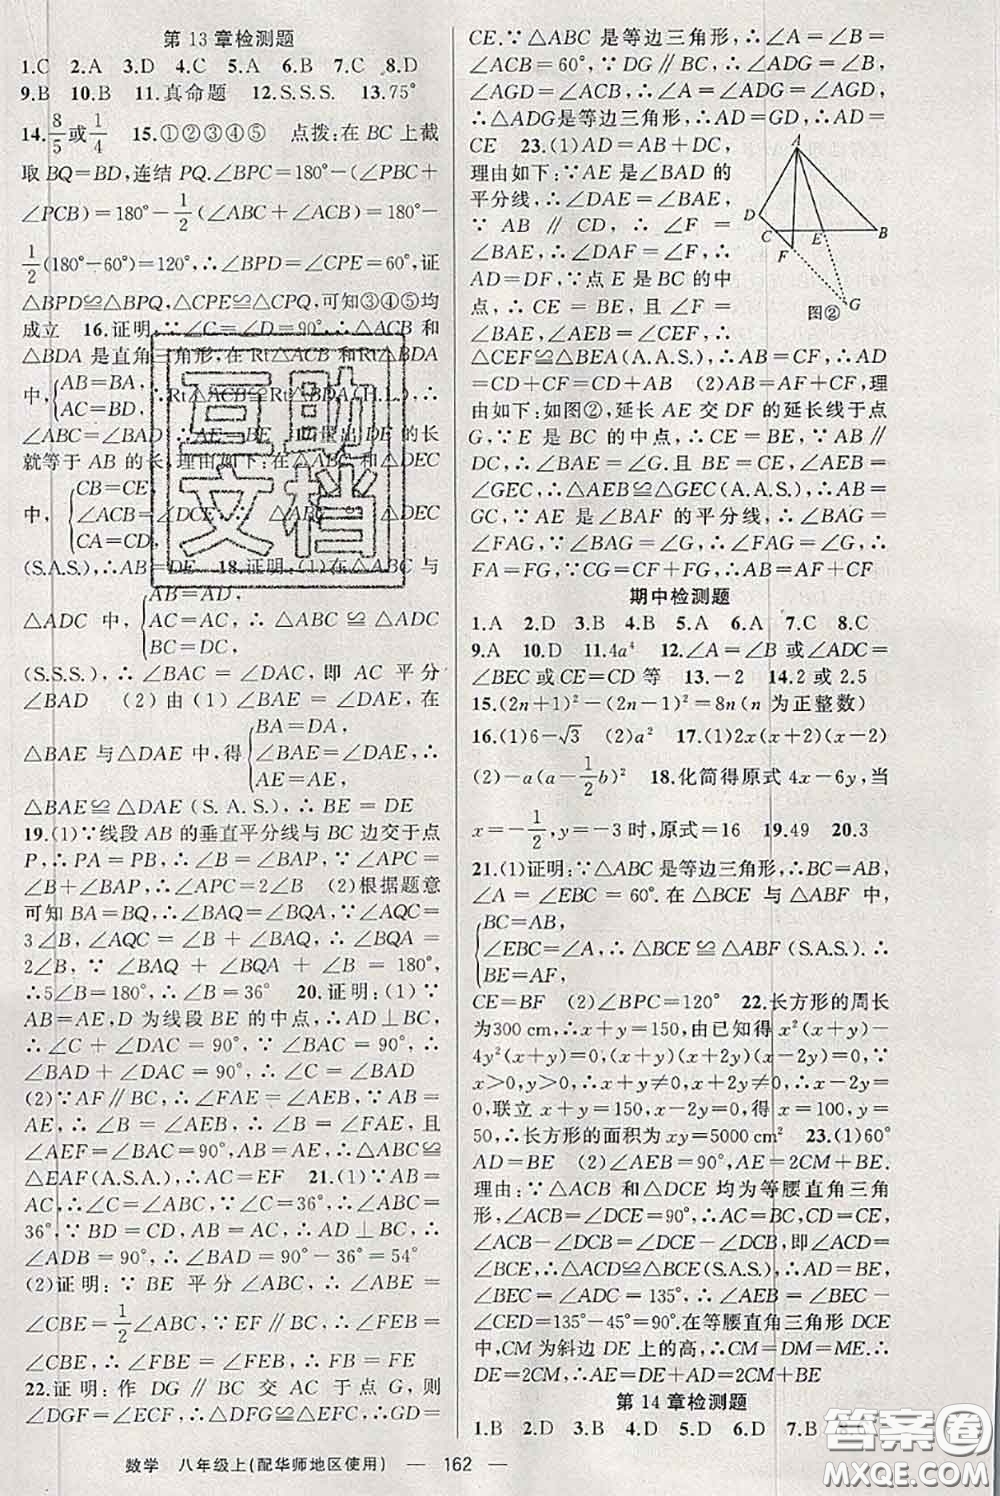 第13章检测题
1.C 2.A 3.D 4.C 5.A 6.B 7.C 8.D
9.B 10.B 11.真命题 12.S.S.S. 13.75°
14.8/5或1/4 15.①②③④⑤ 点拨:在BC上截
取BQ=BD,连结PQ.∠BPC=180°-(∠PBC+
∠PCB)=180°-1/2(∠ABC+∠ACB)=180°-
1/2(180°-60°)=120°,∴∠BPD=∠CPE=60°,证
△BPD≌△BPQ,△CPE≌△CPQ,可知③④⑤均
成立 16.证明:∵∠C=∠D=90°,∴△ACB和
△BDA是直角三角形,在Rt△ACB和Rt△BDA
中,{AB=BA,
AC=BD, ∴Rt△ACB≌Rt△BDA(H.L.),∴
∠ABC=∠BAD,∴AE=BE DE的长
就等于AB的长,理由如下:在△ABC和△DEC
中,{CB=CE,
∠ACB=∠DCE, △DEC
CA=CD,
(S.A.S.),∴AB=DE 18.证明:(1)在△ABC与
△ADC中,{AB=AD,
AC=AC,∴△ABC≌△ADC
BC=DC,
(S.S.S.),∴∠BAC=∠DAC,即AC平分
∠BAD (2)由(1)∠BAE=∠DAE,在
△BAE与△DAE中,得{BA=DA,
∠BAE=∠DAE,∴
AE=AE,
△BAE≌△DAE(S.A.S.),∴BE=DE
19.(1)∵线段AB的垂直平分线与BC边交于点
P,∴PA=PB,∴∠B=∠BAP,∵∠APC=
∠B+∠BAP,∴∠APC=2∠B (2)根据题意
可知BA=BQ,∴∠BAQ=∠BQA,∵∠AQC=
3∠B,∠AQC=∠B+∠BAQ,∴∠BQA=
2∠B,∵∠BAQ+∠BQA+∠B=180°,
∴5∠B=180°,∴∠B=36° 20.证明:(1)∵
AB=AE,D为线段BE的中点,∴AD⊥BC,
∴∠C+∠DAC=90°,∵∠BAC=90°,∴
∠BAD+∠DAC=90°,∴∠C=∠BAD
(2)∵AF∥BC,∴∠FAE=∠AEB,∵AB=
AE,∴∠B=∠AEB,∴∠B=∠FAE,且
∠AEF=∠BAC=90°,AB=AE,∴△ABC≌
△EAF(A.S.A.),∴AC=EF 21.(1)∵AB=
AC,∴∠C=∠ABC,∵∠C=36°,∴∠ABC=
36°,∵BD=CD,AB=AC,∴AD⊥BC,∴
∠ADB=90°,∴∠BAD=90°-36°=54°
(2)证明:∵BE平分∠ABC,∴∠ABE=
∠CBE=1/2∠ABC,∵EF∥BC,∴∠FEB=
∠CBE,∴∠FBE=∠FEB,∴FB=FE
22.证明:作DG∥BC交AC于点G,则
∠DGF=∠ECF,∴△DGF≌△ECF,∴GD=
CE.∵△ABC是等边三角形,∴∠A=∠B=
∠ACB=60°,∵DG∥BC,∴∠ADG=∠B,
∠AGD=∠ACB,∴∠A=∠ADG=∠AGD,
∴△ADG是等边三角形,∴AD=GD,∴AD=
CE 23.(1)AD=AB+DC,
理由如下:∵AE是∠BAD的
平分线,∴∠DAE=∠BAE,
∵AB∥CD,∴∠F=
∠BAE,∴∠DAF=∠F,∴
AD=DF,∵点E是BC的中
点,∴CE=BE,且∠F=
∠BAE,∠AEB=∠CEF,∴
△CEF≌△BEA(A.A.S.),∴AB=CF,∴AD
=CD+CF=CD+AB (2)AB=AF+CF,理
由如下:如图②,延长AE交DF的延长线于点
G,∵E是BC的中点,∴CE=BE,∵AB∥
DC,∴∠BAE=∠G.且BE=CE,∠AEB=
∠GEC,∴△AEB≌△GEC(A.A.S.),∴AB=
GC,∵AE是∠BAF的平分线,∴∠BAG=
∠FAG,∵∠BAG=∠G,∴∠FAG=∠G,∴
FA=FG,∵CG=CF+FG,∴AB=AF+CF
A
D
C
E
B
F
G
图②
期中检测题
1.A 2.D 3.B 4.B 5.A 6.A 7.C 8.C
9.A 10.D 11.4a⁴ 12.∠A=∠B或∠ADC=
∠BEC或CE=CD等 13.-2 14.2或2.5
15.(2n+1)²-(2n-1)²=8n(n为正整数)
16.(1)6-√3 (2)a² 17.(1)2x(x+2)(x-2)
(2)-a(a-1/2b)² 18.化简得原式4x-6y,当
x=-1/2,y=-3时,原式=16 19.49 20.3
21.(1)证明:∵△ABC是等边三角形,∴BC=AB,
∠A=∠EBC=60°.在△BCE与△ABF中,
{BC=AB,
∠EBC=∠A,∴△BCE≌△ABF(S.A.S.).∴
BE=AF,
CE=BF (2)∠BPC=120° 22.长方形的周长
为300 cm,∴x+y=150,由已知得x²(x+y)-
4y²(x+y)=0,(x+y)(x+2y)(x-2y)=0,∵
x>0,y>0,∴x+y≠0,x+2y≠0,∴x-2y=
0,联立x+y=150,x-2y=0,得x=100,y=
50,∴长方形的面积为xy=5000 cm² 23.(1)60°
AD=BE (2)∠AEB=90°,AE=2CM+BE.
理由:∵△ACB和△DCE均为等腰直角三角
形,∴∠ACB=∠DCE=90°,∴AC=BC,CD=CE,
∠ACB-∠DCB=∠DCE-∠DCB,即∠ACD=
∠BCE,∴△ACD≌△BCE(S.A.S.),∴AD=BE,
∠BEC=∠ADC=135°,∴∠AEB=∠BEC-
∠CED=135°-45°=90°.在等腰直角三角形DCE
中,CM为斜边DE上的高,∴CM=DM=ME.∴
DE=2CM,∴AE=DE+AD=2CM+BE
第14章检测题
1.B 2.D 3.B 4.C 5.D 6.D 7.B
数学 八年级上(配华师地区使用) — 162 —
互助
文档
答案圈
MXQE.COM